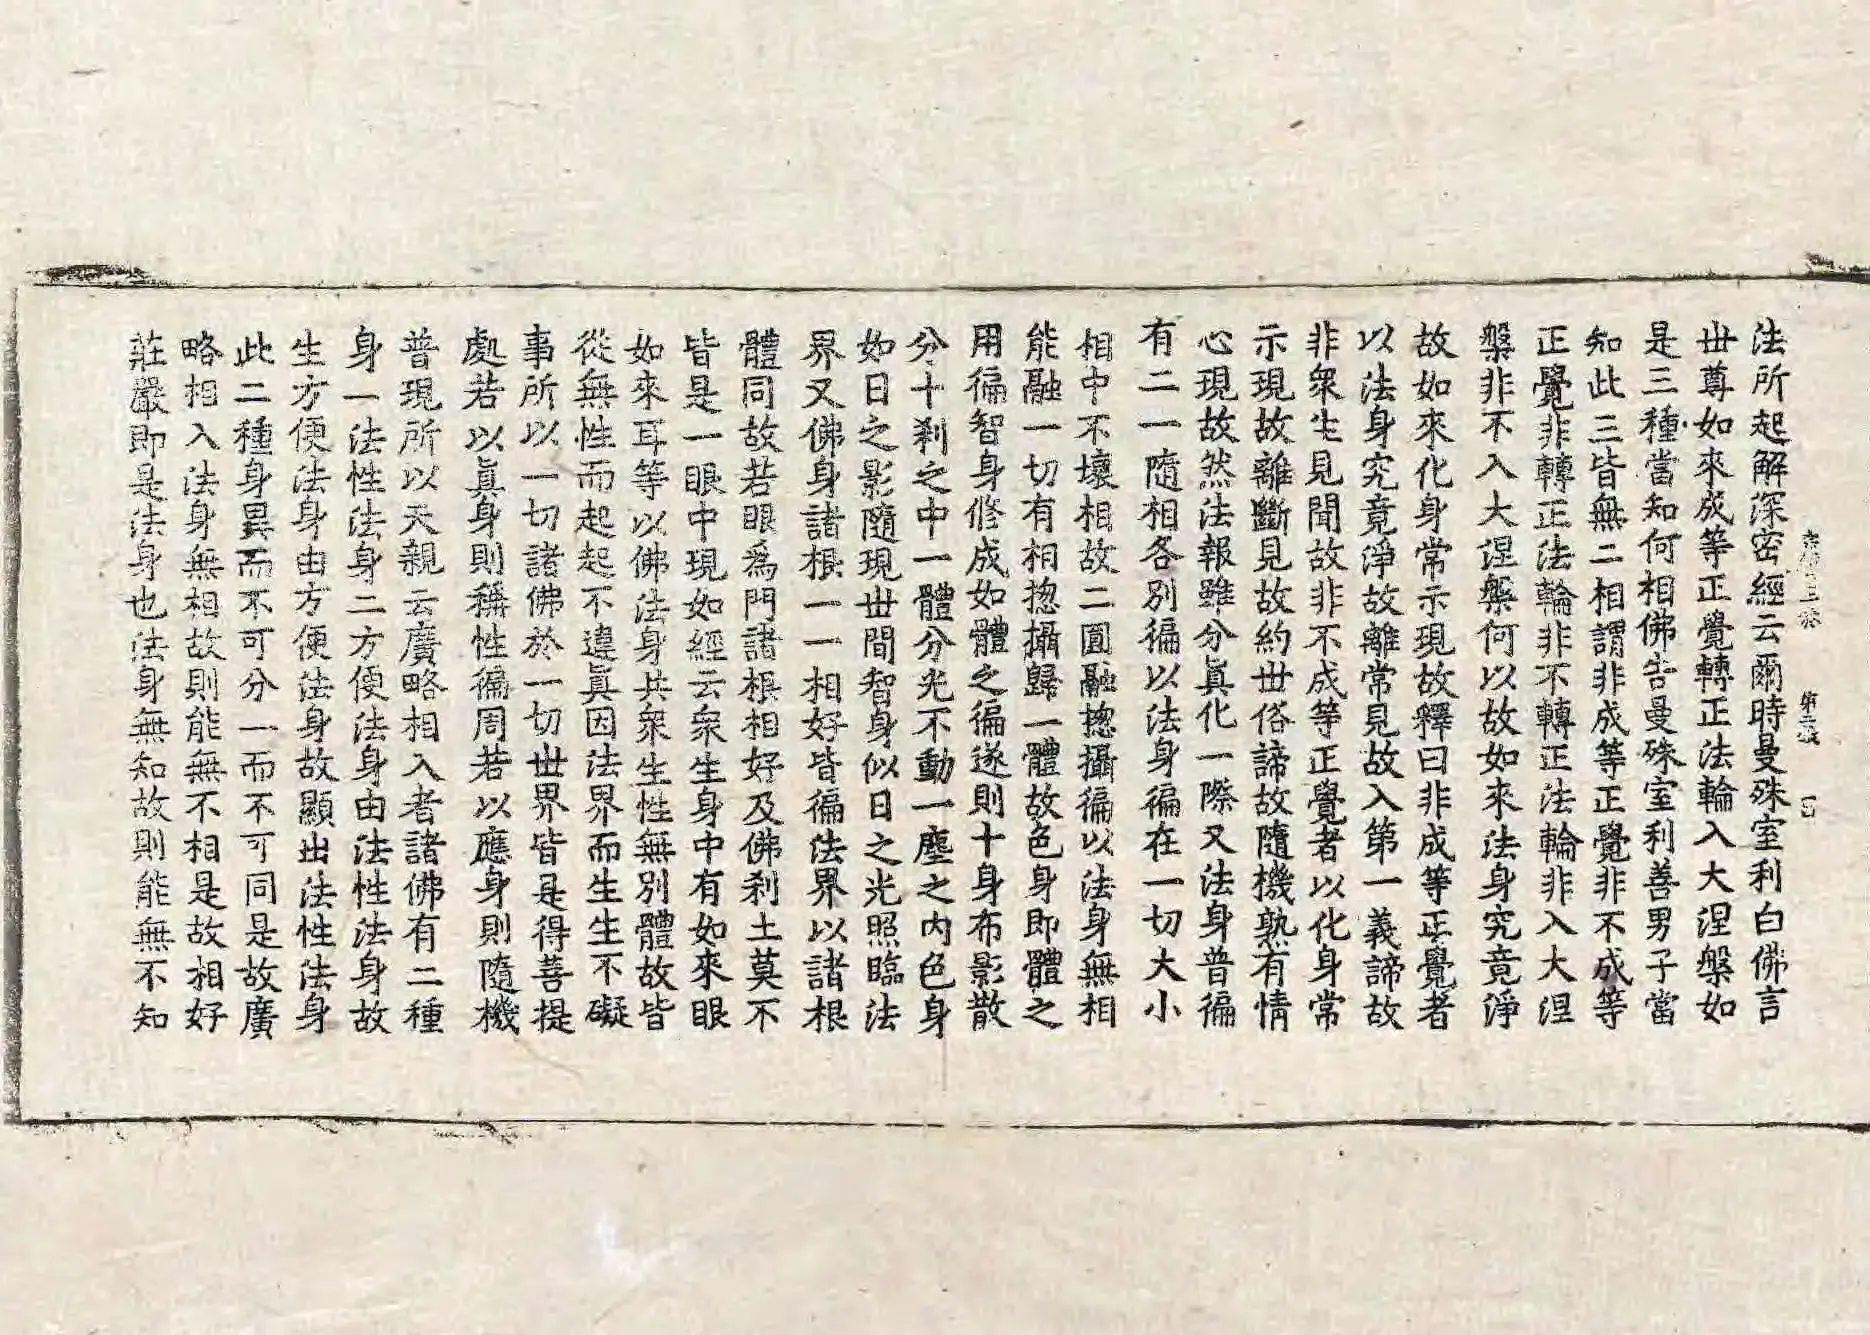 法所起解深密經云爾時曼殊室利白佛言
世尊如來成等正覺轉正法輪入大涅槃如
是三種當知何相佛告曼殊室利善男子當
知此三皆無二相謂非成等正覺非不成等
正覺非轉正法輪非不轉正法輪非入大涅
槃非不入大涅槃何以故如來法身究竟淨
故如來化身常示現故釋曰非成等正覺者
以法身究竟淨故離常見故入第一義諦故
非衆生見聞故非不成等正覺者以化身常
示現故離斷見故約世俗諦故隨機熟有情
心現故然法報雖分眞化一際又法身普徧
有二一隨相各別徧以法身徧在一切大小
相中不壞相故二圓融揔攝徧以法身無相
能融一切有相揔攝歸一體故色身即體之
用徧智身修成如體之徧遂則十身布影散
分十刹之中一體分光不動一塵之内色身
如日之影隨現世間智身似日之光照臨法
界又佛身諸根一一相好皆徧法界以諸根
體同故若眼爲門諸根相好及佛刹土莫不
皆是一眼中現如經云衆生身中有如來眼
如來耳等以佛法身共衆生性無別體故皆
從無性而起起不違眞因法界而生生不礙
事所以一切諸佛於一切世界皆是得菩提
處若以眞身則稱性徧周若以應身則隨機
普現所以天親云廣略相入者諸佛有二種
身一法性法身二方便法身由法性法身故
生方便法身由方便法身故顯出法性法身
此二種身異而不可分一而不可同是故廣
略相入法身無相故則能無不相是故相好
莊嚴即是法身也法身無知故則能無不知